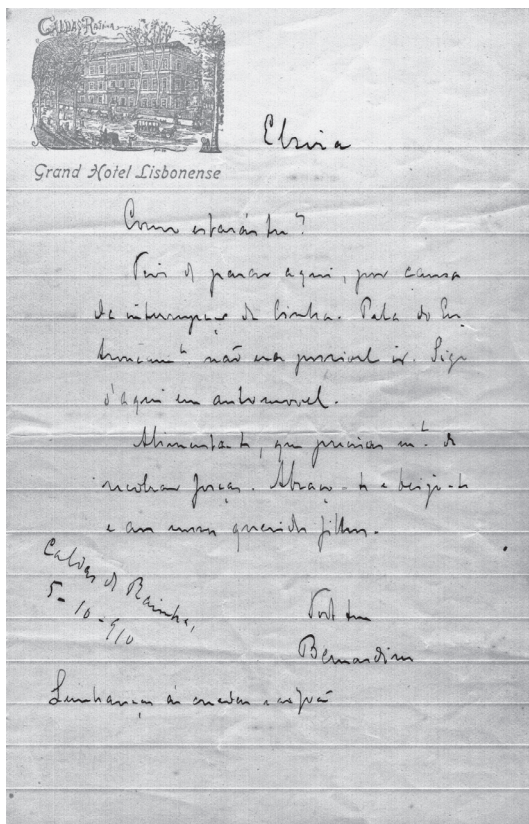 CALDAS RAINHA
Grand Hotel Lisbonense
Elzira
Como estarás tu?
Tive de parar aqui, por causa
da interrupção da linha. Pela do En
troncam.to não era possivel ir. Sigo
d'aqui em automovel.
Alimenta-te, que precisas m.to de
recobrar forças. Abraço-te e beijo-te
e aos nossos queridos filhos.
Caldas da Rainha,
5-10-910
Todo teu
Bernardino
Lembranças ás creadas e ao